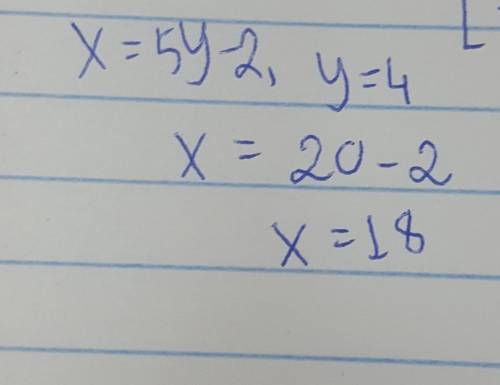 x = 5y - 2, y = 4
x = 20 - 2
x = 18